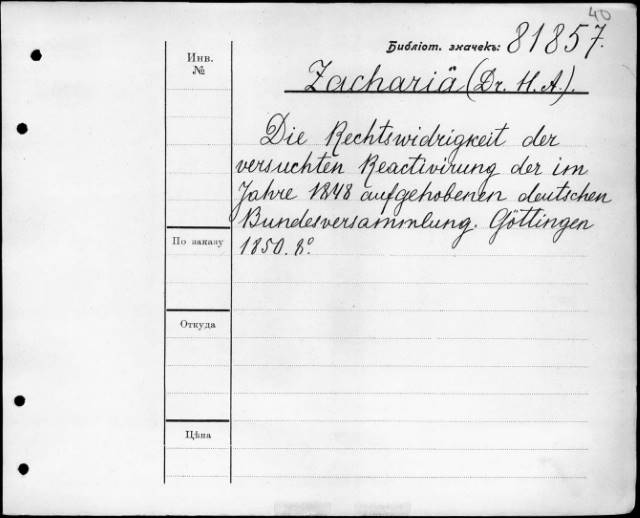 40
Библіот. значекъ: 81857.
Инв.
№
Zachariä (Dr. H. A.).
Die Rechtswidrigkeit der
versuchten Reactivirung der im
Jahre 1848 aufgehobenen deutschen
Bundesversammlung. Göttingen
1850. 8°.
По заказу
Откуда
Цѣна